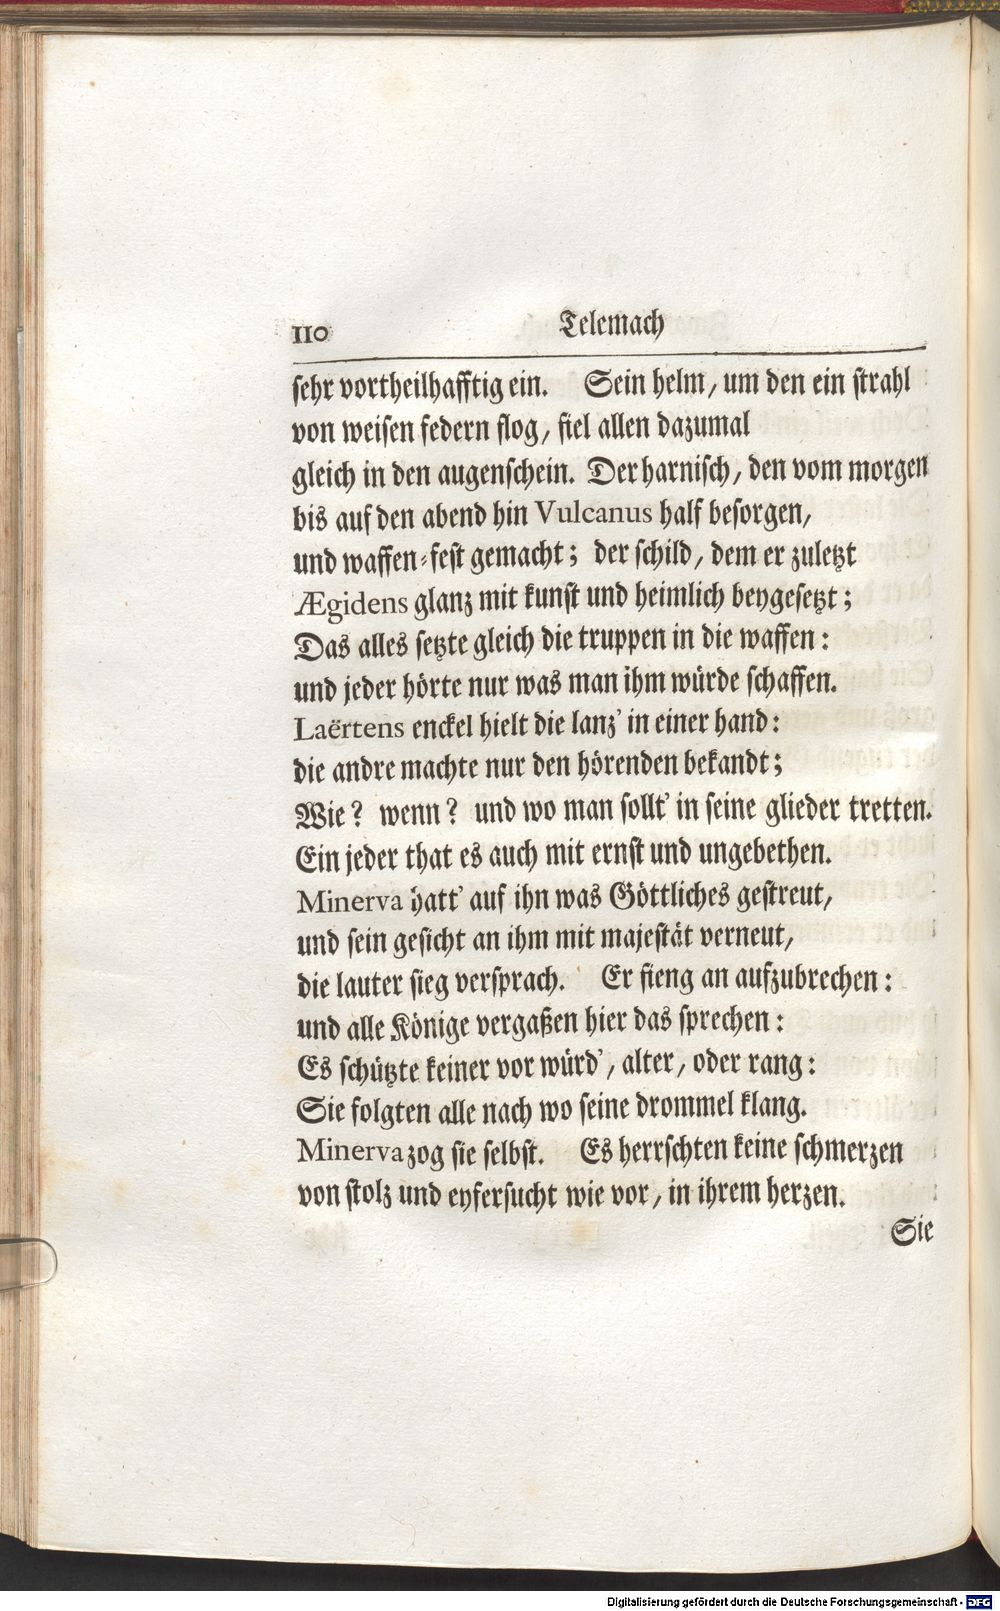 110 Telemach
sehr vortheilhafftig ein. Sein helm, um den ein strahl
von weisen federn flog, fiel allen dazumal
gleich in den augenschein. Der harnisch, den vom morgen
bis auf den abend hin Vulcanus half besorgen,
und waffen-fest gemacht; der schild, dem er zuletzt
Ægidens glanz mit kunst und heimlich beygesetzt;
Das alles setzte gleich die truppen in die waffen:
und jeder hörte nur was man ihm würde schaffen.
Laërtens enckel hielt die lanz' in einer hand:
die andre machte nur den hörenden bekandt;
Wie? wenn? und wo man sollt' in seine glieder tretten.
Ein jeder that es auch mit ernst und ungebethen.
Minerva hatt' auf ihn was Göttliches gestreut,
und sein gesicht an ihm mit majestät verneut,
die lauter sieg versprach. Er fieng an aufzubrechen:
und alle Könige vergaßen hier das sprechen:
Es schützte keiner vor würd', alter, oder rang:
Sie folgten alle nach wo seine drommel klang.
Minerva zog sie selbst. Es herrschten keine schmerzen
von stolz und eyfersucht wie vor, in ihrem herzen.
Sie
Digitalisierung gefördert durch die Deutsche Forschungsgemeinschaft - DFG